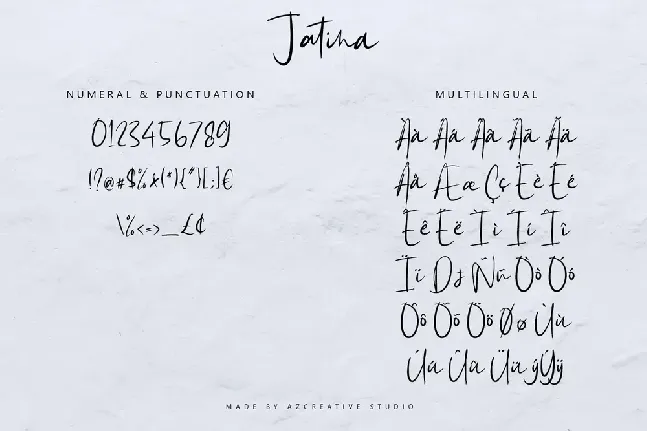 Jatina
NUMERAL & PUNCTUATION
0123456789
!?@#$%&(*){"}[;]€
\%<=>_£¢
MULTILINGUAL
Àà Áá Ââ Ãã Ää
Åå Ææ Çç Èè Éé
Êê Ëë Ìì Íí Îî
Ïï Dd Ññ Òò Óó
Ôô Õõ Öö Øø Ùù
Úú Ûû Üü ýÝÿ
MADE BY AZCREATIVE STUDIO